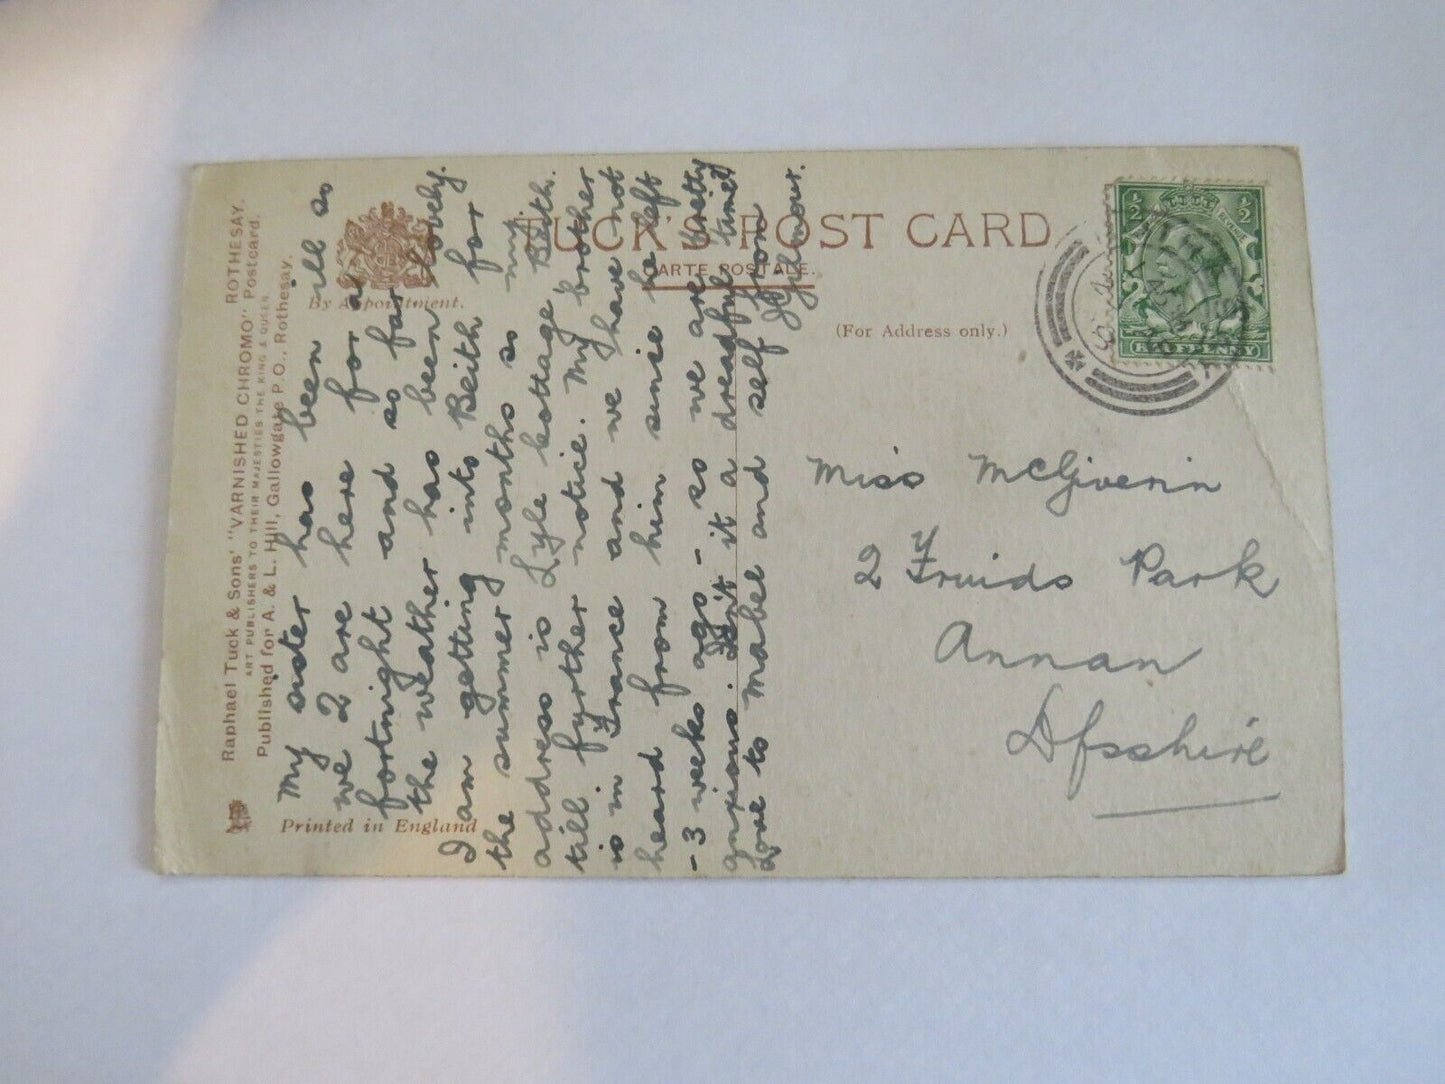 Raphael Tuck & Sons' "VARNISHED CHROMO" Postcard. ROTHESAY.
ART PUBLISHERS TO THEIR MAJESTIES THE KING & QUEEN.
Published for A. & L. Hill, Gallowgate P.O., Rothesay.
By Appointment.
Printed in England
TUCK'S POST CARD
CARTE POSTALE.
(For Address only.)
My sister has been ill so
we 2 are here for a
fortnight and so far
the weather has been lovely.
I am getting into Beith for
the summer months so my
address is Lyle Cottage Beith.
till further notice. My brother
is in France and we have not
heard from him since he left
- 3 weeks ago - so we are pretty
anxious. Isn't it a dreadful time?
Love to Mabel and self from
Gilmour.
½ ½
HALFPENNY
Miss McGiverin
2 Fruids Park
Annan
Dfsshire